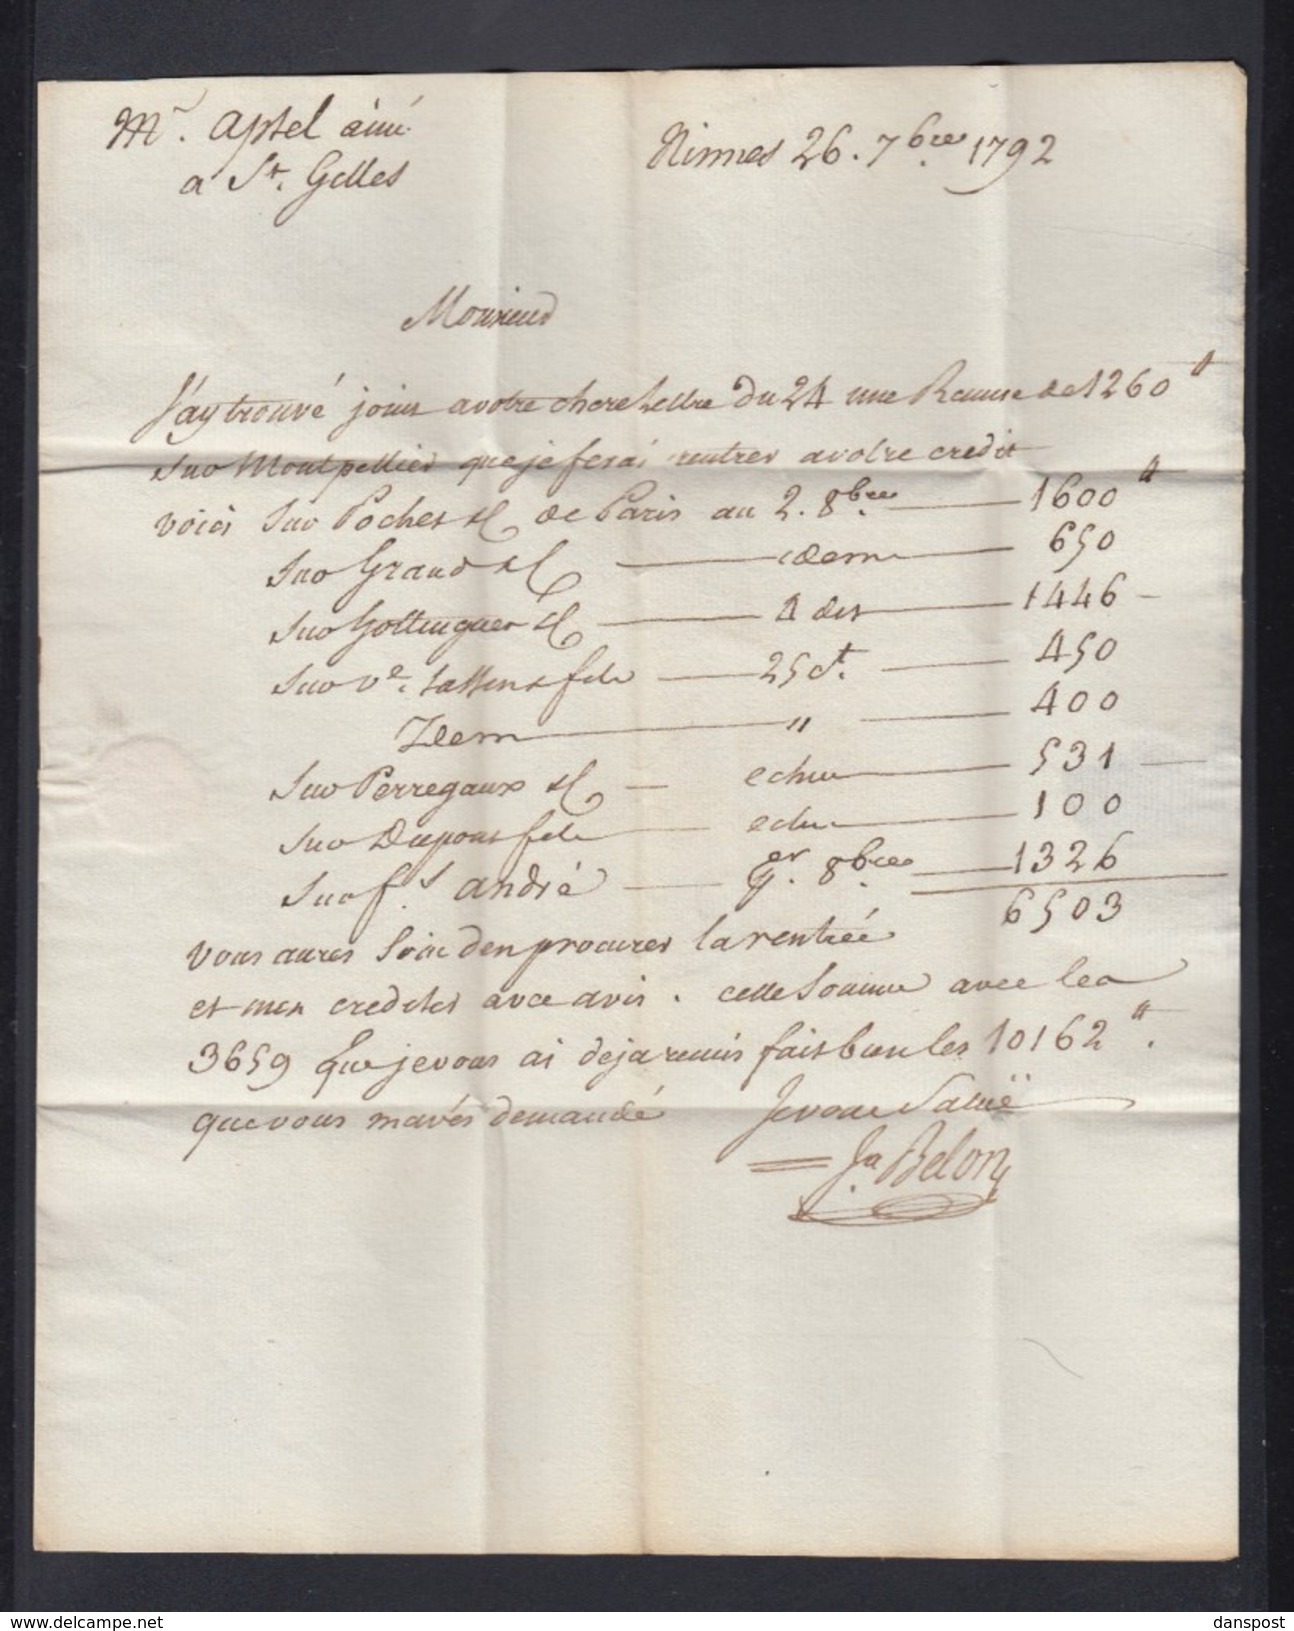 Mr. Aptel ainé
a St. Gilles
Nismes 26. 7bre. 1792
Monsieur
J'ay trouvé joint a votre chere Lettre du 24 une Remise de 1260 ₶
Sur Montpellier que je ferai rentrer a votre credit
voici Sur Poches & C de Paris au 2. 8bre. 1600 ₶
Sur Grand & C idem 650
Sur Hottinguer & C 4 dit 1446
Sur Ve. & fils 25 ct. 450
Idem " 400
Sur Perregaux & C echu 531
Sur Dupont fils echu 100
Sur fs. André 8bre. 1326
6503
Vous aures Soin den procurer la rentrée
et men crediter avec avis. cette Somme avec les
3659 Que je vous ai deja remis fait bien les 10162 ₶.
que vous mavés demandé Je vous Salüe
Ja Belon
https://www.delcampe.net
danspost